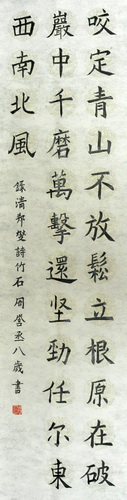 咬定青山不放鬆立根原在破
巖中千磨萬擊還坚勁任尔東
西南北風
錄清郑燮詩竹石 周啓丞八歲書